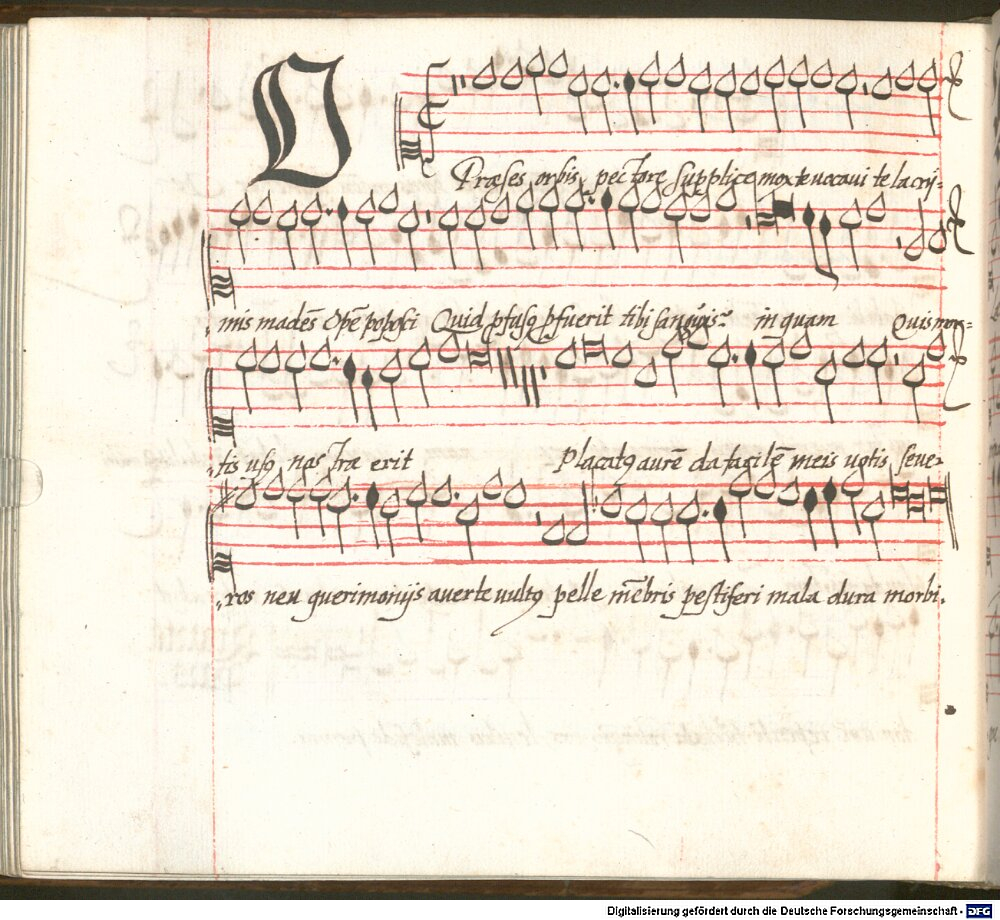 O
Præses orbis pectore supplice mox te vocavi te lacri-
mis madēs Opē poposci Quid pfusꝰ pfuerit tibi sanguis? in quam Quis mor-
tis usꝰ nostræ erit Placatꝰ aurē da facilē meis votis seve-
ros neu querimonijs averte vultꝰ pelle mēbris pestiferi mala dura morbi.
Digitalisierung gefördert durch die Deutsche Forschungsgemeinschaft - DFG